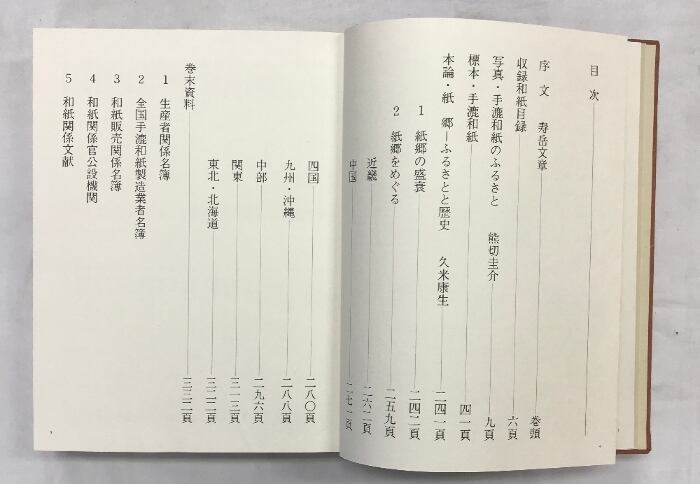 目次
序文　寿岳文章　巻頭
収録和紙目録　六頁
写真・手漉和紙のふるさと　熊切圭介　九頁
標本・手漉和紙　四一頁
本論・紙　郷―ふるさとと歴史　久米康生　二四一頁
1　紙郷の盛衰　二四二頁
2　紙郷をめぐる　二五九頁
近畿　二六二頁
中国　二七一頁
四国　二八〇頁
九州・沖縄　二八八頁
中部　二九六頁
関東　三一三頁
東北・北海道　三二二頁
巻末資料　三三二頁
1　生産者関係名簿
2　全国手漉和紙製造業者名簿
3　和紙販売関係名簿
4　和紙関係官公設機関
5　和紙関係文献